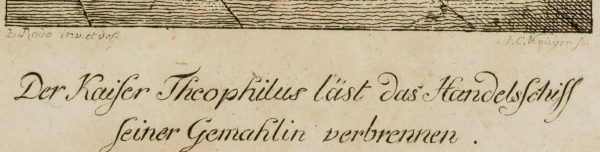 B. Rode inv. et del.
J. C. Krüger sc.
Der Kaiſer Theophilus läst das Handelsſchiff
ſeiner Gemahlin verbrennen.